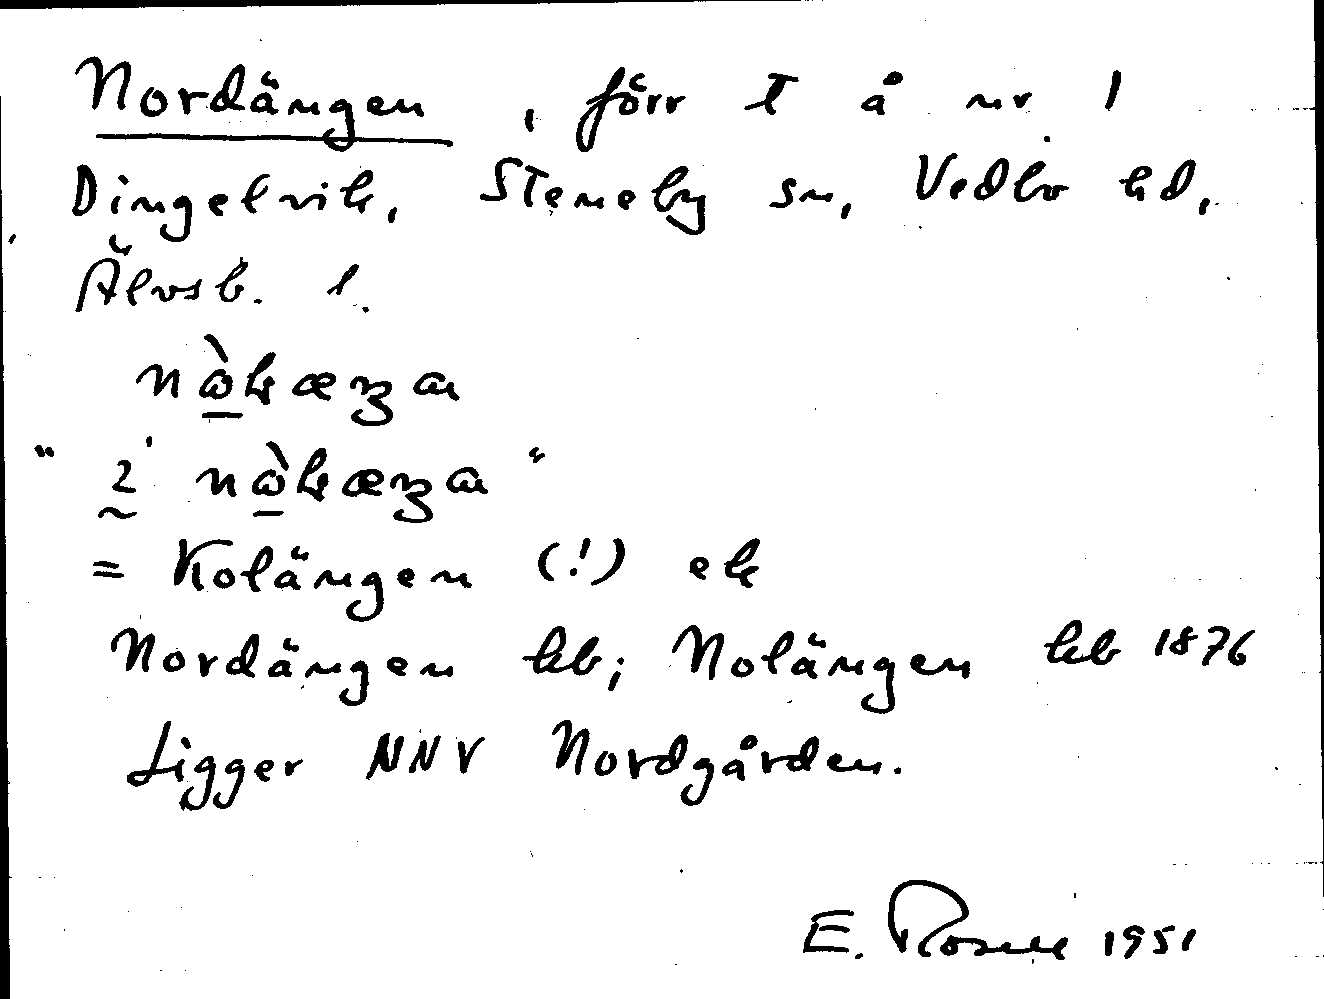 Nordängen, förr t å nr 1
Dingelvik, Steneby sn, Vedbo hd,
Älvsb. l.
= Kolängen (!) ek
Nordängen kb; Nolängen kb 1876
Ligger NNV Nordgården.
E. 1951